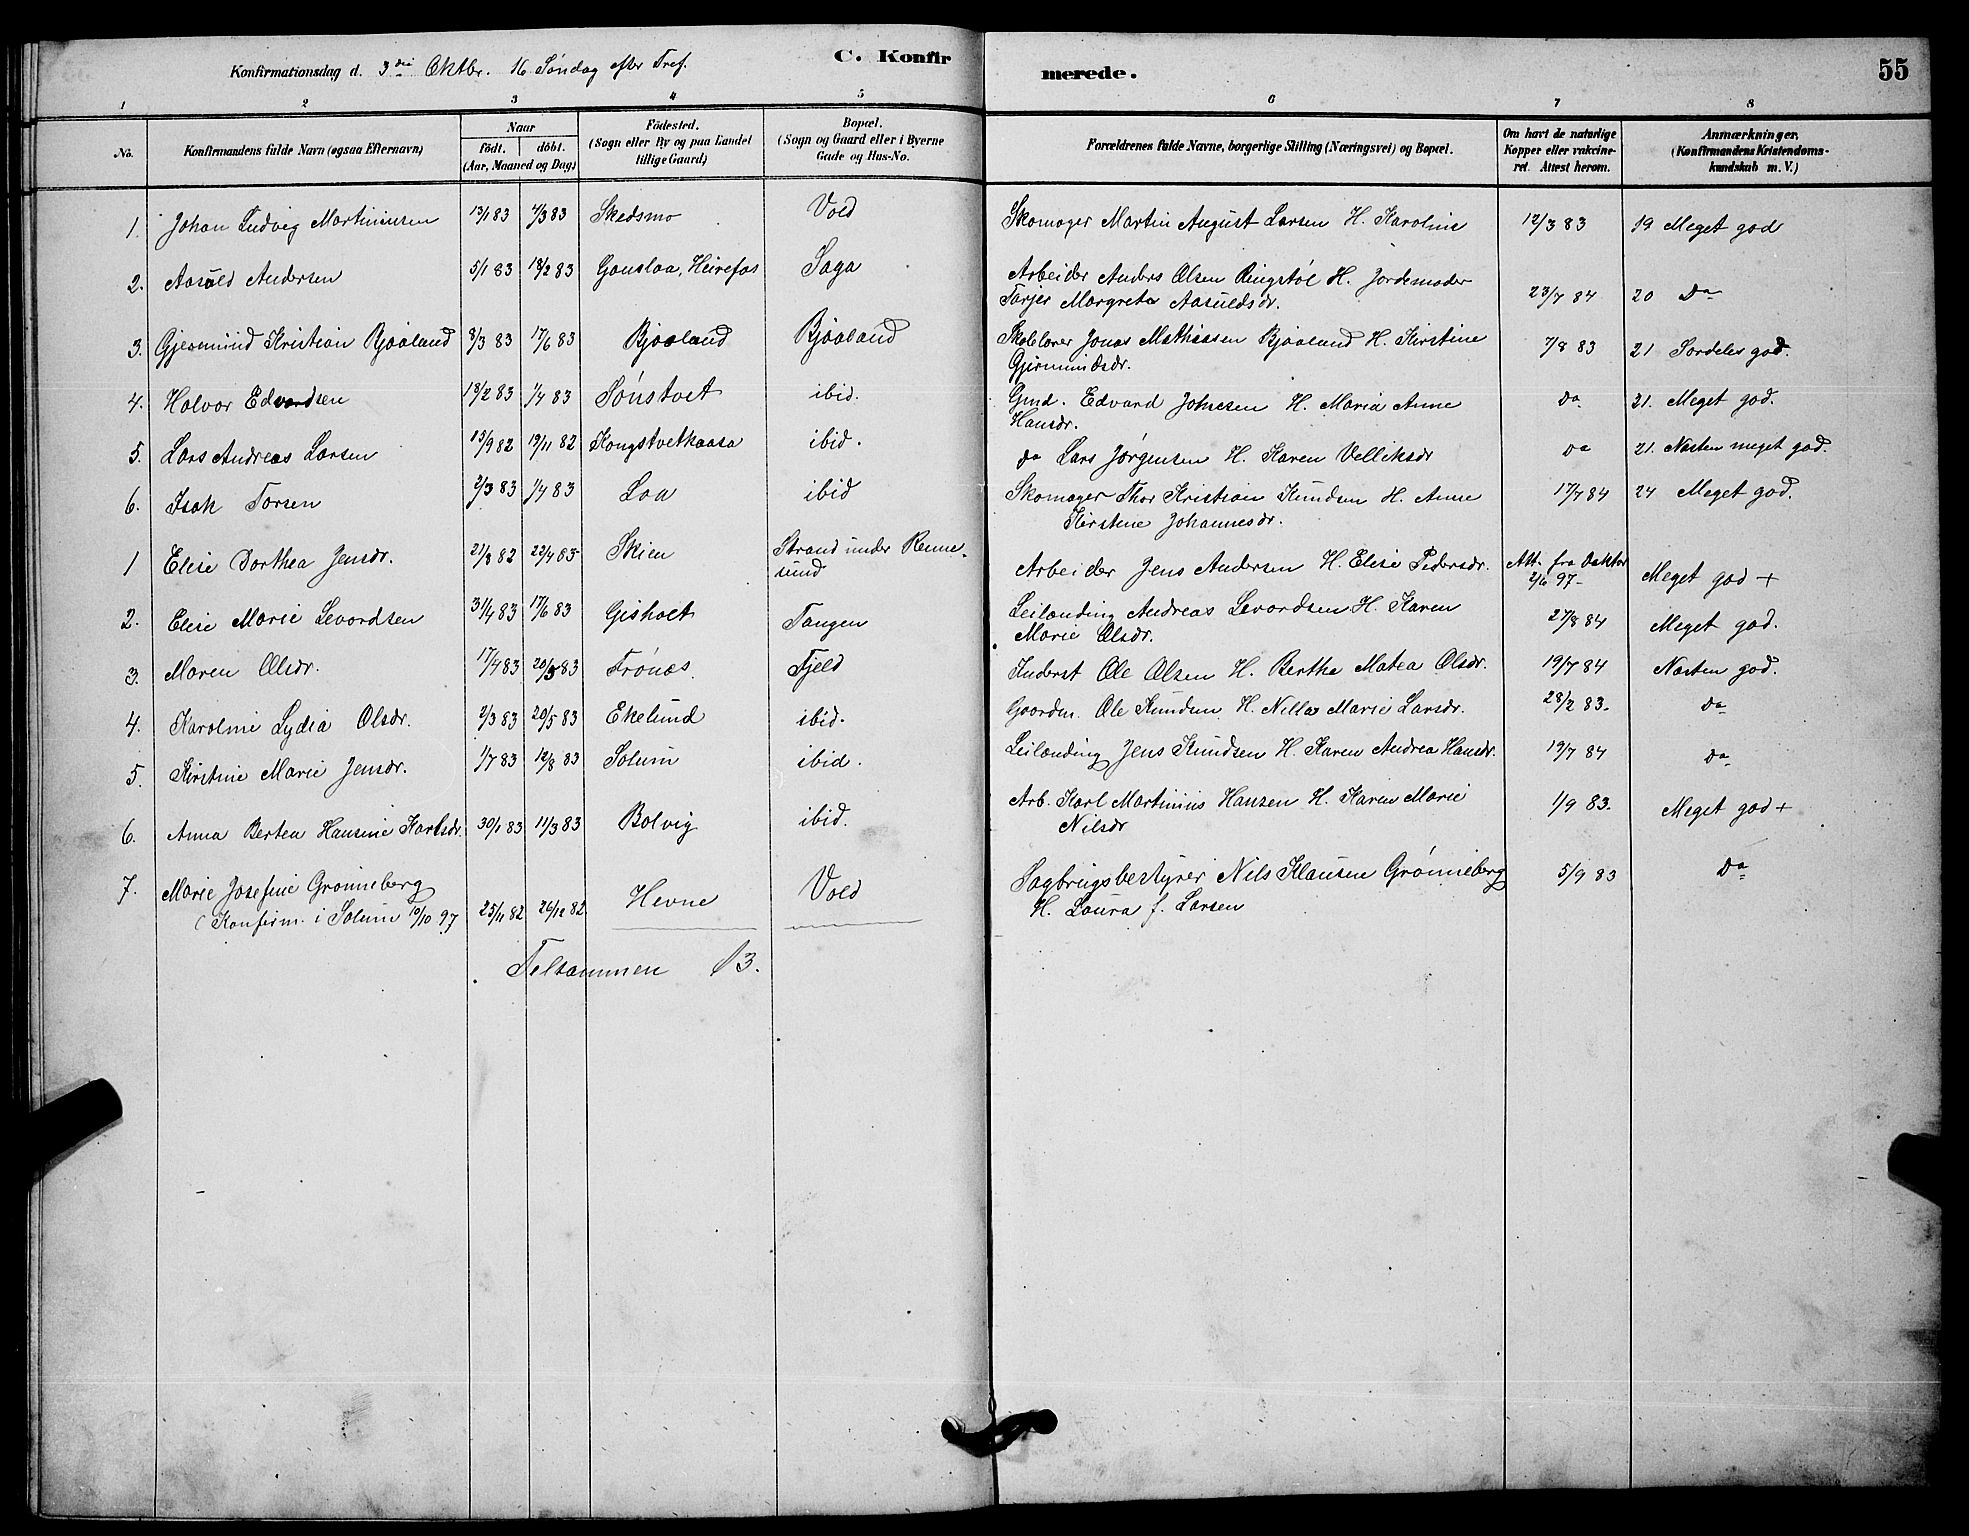 Konfirmationsdag d. 3die Oktbr. 16 Søndag efter Tref. C. Konfir merede. 55
1 2 3 4 5 6 7 8
No. Konfirmandens fulde Navn (ogsaa Efternavn) Naar født. døbt. (Aar, Maaned og Dag) Fødested. (Sogn eller By og paa Landet tillige Gaard) Bopæl. (Sogn og Gaard eller i Byerne Gade og Hus-No. Forældrenes fulde Navne, borgerlige Stilling (Næringsvei) og Bopæl. Om havt de naturlige Kopper eller vakcineret. Attest herom. Anmærkninger, (Konfirmandens Kristendomskundskab m. V.)
1. Johan Ludvig Martininsen 13/1 83 4/3 83 Skedsmo Vold Skomager Martin August Larsen H. Karoline 12/3 83 19 Meget god
2. Aasuld Andersen 5/1 83 18/2 83 Gonslaa, Heirefos Saga Arbeider Anders Olsen Ringstøl H. Jordemoder
Tarjer Margrete Aasuldsdr. 23/7 84 20 Do
3. Gjermund Kristian Bjaaland 8/3 83 17/6 83 Bjaaland Bjaaland Skolelærer Jonas Mathiasen Bjaaland H. Kirstine
Gjermundsdr. 7/8 83 21 Særdeles god.
4. Halvor Edvardsen 18/2 83 1/4 83 Sønstvet ibid. Gmd. Edvard Johnsen H. Maria Anne
Hansdr. Do 21. Meget god.
5. Lars Andreas Larsen 15/9 82 19/11 82 Kongstvetkaasa ibid. do Lars Jørgensen H. Karen Velliksdr Do 21. Næsten meget god.
6. Isak Torsen 2/3 83 1/4 83 Laa ibid Skomager Thor Kristian Knudsen H. Anne
Kirstene Johannesdr. 17/7 84 24 Meget god.
1 Elise Dorthea Jensdr. 21/8 82 22/4 83 Skien Strand under Rennesund Arbeider Jens Andersen H. Elise Pedersdr. Att. fra Doktor
2/6 97 Meget god +
2. Elise Marie Sevordsen 31/4 83 17/6 83 Gisholt Tangen Leilænding Andreas Sevordsen H. Karen
Marie Olsdr. 27/8 84 Meget god.
3. Maren Olsdr. 17/4 83 20/5 83 Frønæs Fjeld Inderst Ole Olsen H. Berthe Matea Olsdr. 19/7 84 Næsten god.
4. Karoline Lydia Olsdr. 2/3 83 20/5 83 Ekelund ibid. Gaardm. Ole Knudsen H. Nilla Marie Larsdr. 28/2 83. Do
5. Kirstine Marie Jensdr. 1/7 83 12/8 83 Solum ibid. Leilænding Jens Knudsen H. Karen Andrea Hansdr. 19/7 84 Do
6. Anna Bertea Hansine Karlsdr. 30/1 83 11/3 83 Bolvig ibid. Arb. Karl Martinius Hansen H. Karen Marie
Nilsdr 1/9 83. Meget god +
7. Marie Josefine Grønneberg Hevne Vold Sagbrugsbestyrer Nils Klausen Grønneberg 5/9 83 Do
(Konfirm. i Solum 10/10 97 25/11 82 26/12 82 H. Laura f. Larsen
Tilsammen 13.